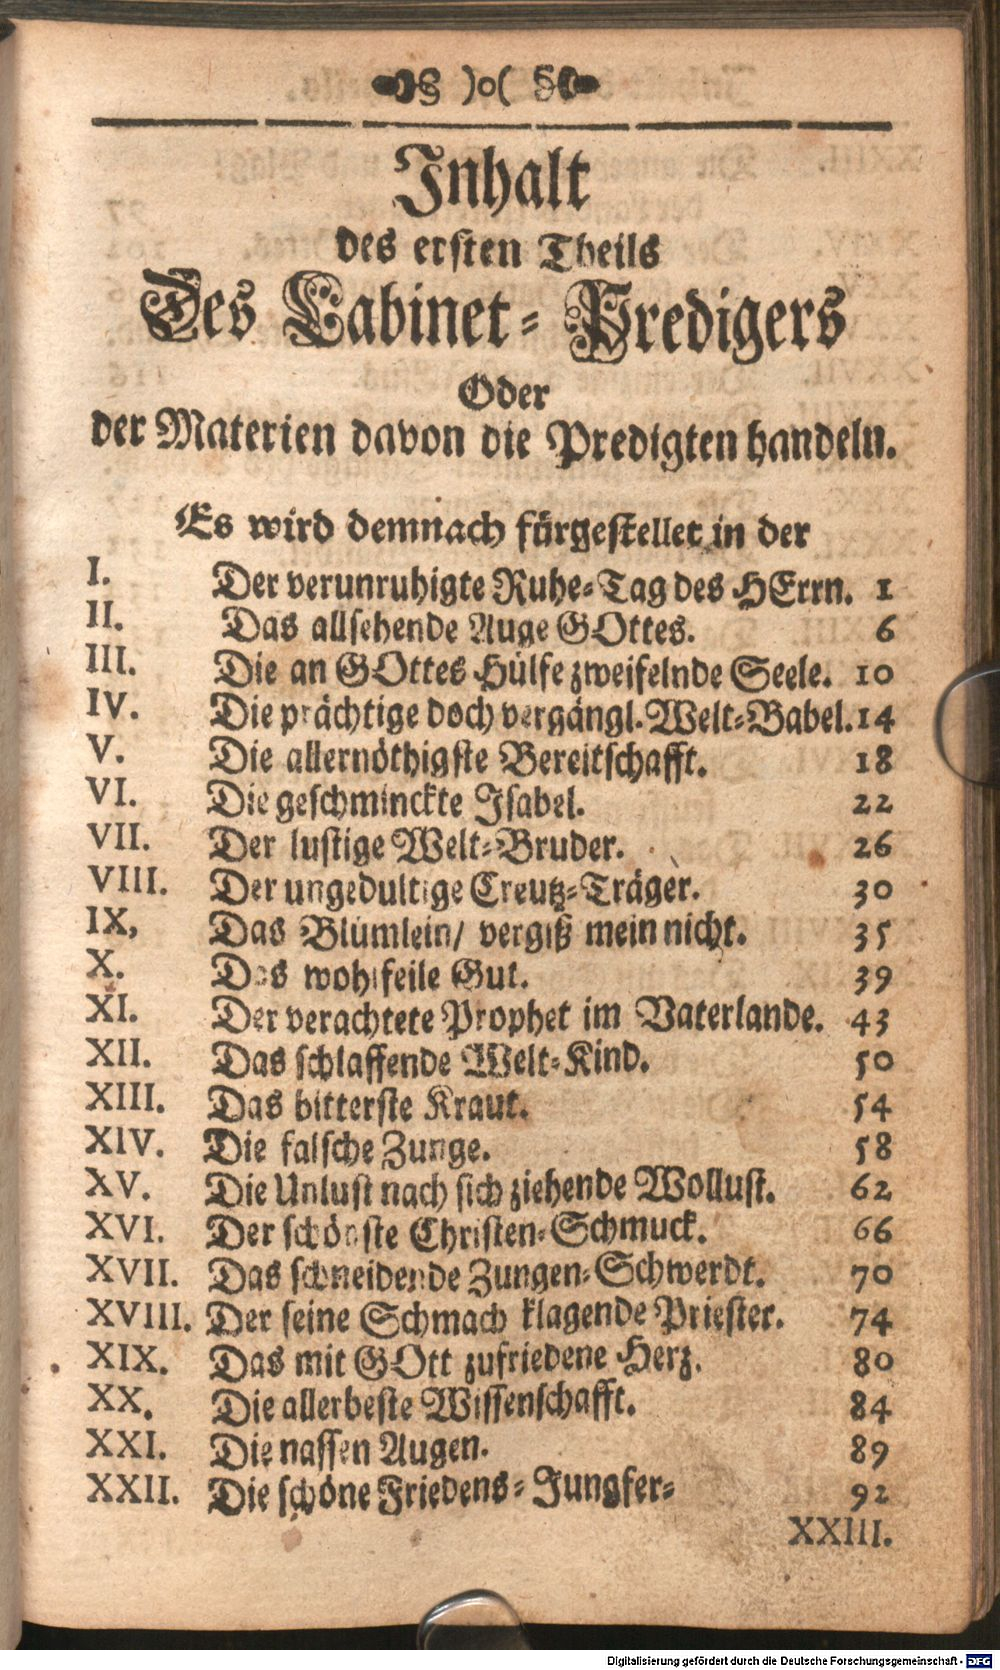 )o(
Inhalt
des ersten Theils
Des Cabinet-Predigers
Oder
der Materien davon die Predigten handeln.
Es wird demnach fürgestellet in der
I. Der verunruhigte Ruhe-Tag des HErrn. 1
II. Das allsehende Auge GOttes. 6
III. Die an GOttes Hülfe zweifelnde Seele. 10
IV. Die prächtige doch vergängl. Welt-Babel. 14
V. Die allernöthigste Bereitschafft. 18
VI. Die geschminckte Isabel. 22
VII. Der lustige Welt-Bruder. 26
VIII. Der ungedultige Creutz-Träger. 30
IX, Das Blümlein/ vergiß mein nicht. 35
X. Das wohlfeile Gut. 39
XI. Der verachtete Prophet im Vaterlande. 43
XII. Das schlaffende Welt-Kind. 50
XIII. Das bitterste Kraut. 54
XIV. Die falsche Zunge. 58
XV. Die Unlust nach sich ziehende Wollust. 62
XVI. Der schönste Christen-Schmuck. 66
XVII. Das schneidende Zungen-Schwerdt. 70
XVIII. Der seine Schmach klagende Priester. 74
XIX. Das mit GOtt zufriedene Herz. 80
XX. Die allerbeste Wissenschafft. 84
XXI. Die nassen Augen. 89
XXII. Die schöne Friedens-Jungfer- 92
XXIII.
Digitalisierung gefördert durch die Deutsche Forschungsgemeinschaft - DFG